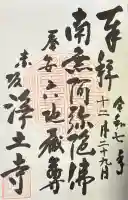 奉拝
令和七年
十二月二十九日
南無阿弥陀佛
六地蔵尊
赤坂
浄土寺